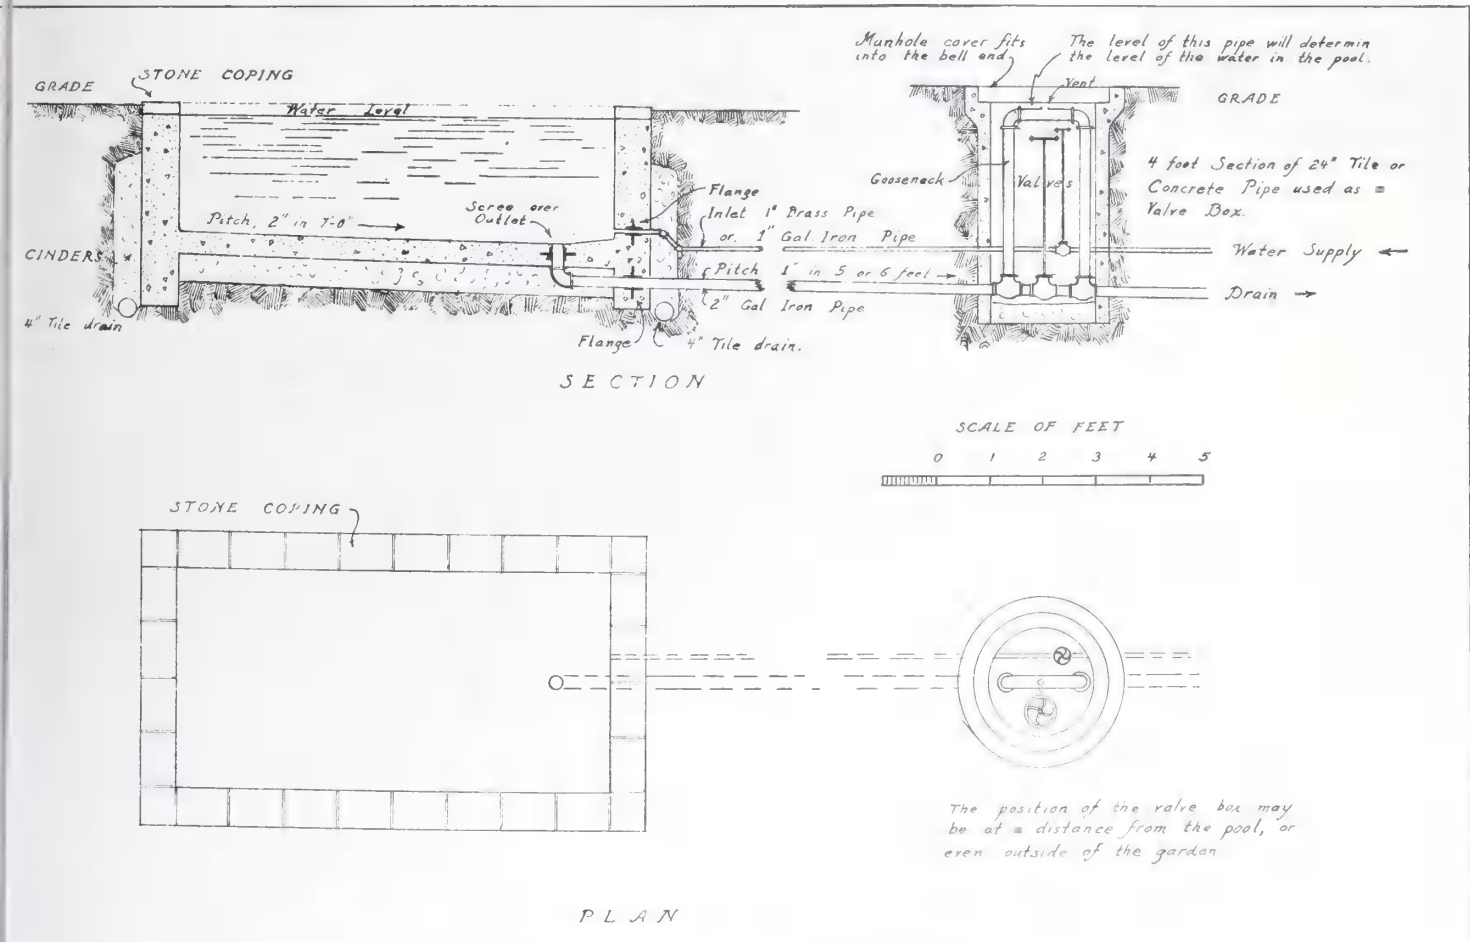 STONE COPING
GRADE
Water Level
Pitch, 2" in 7'-0"
Screen over
Outlet
CINDERS
4" Tile drain
Flange
Inlet 1" Brass Pipe
or 1" Gal Iron Pipe
Pitch 1" in 5 or 6 feet
2" Gal Iron Pipe
Flange
4" Tile drain.
Manhole cover fits
into the bell end
The level of this pipe will determin
the level of the water in the pool.
Vent
GRADE
Gooseneck
Valves
4 foot Section of 24" Tile or
Concrete Pipe used as a
Valve Box.
Water Supply
Drain
SECTION
SCALE OF FEET
0 1 2 3 4 5
STONE COPING
The position of the valve box may
be at a distance from the pool, or
even outside of the garden
PLAN